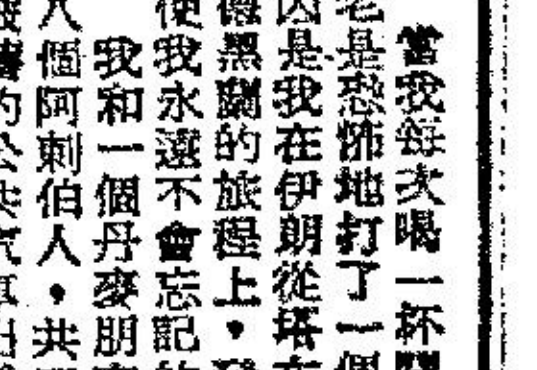 當我每次喝一杯
是恐怖地打了一個
因是我在伊朗從塔
黑關的旅程上，
使我永遠不會忘記
我和一個丹麥朋
人個阿刺伯人，共
的公共汽車